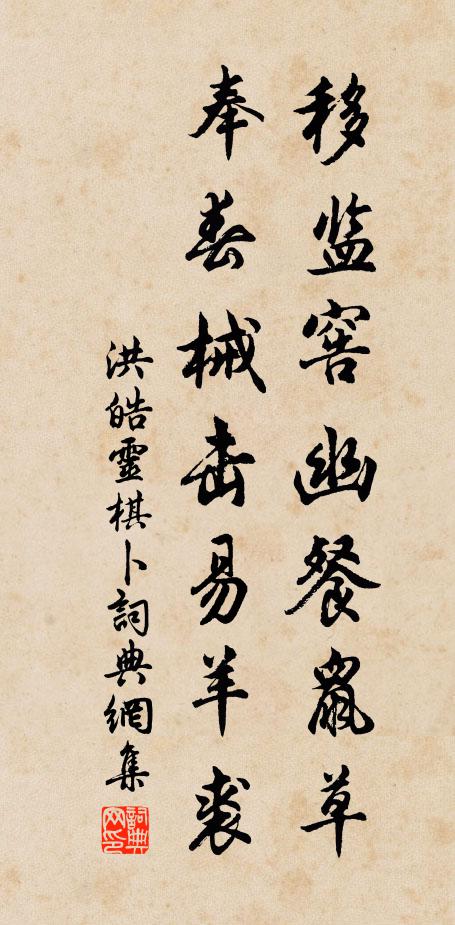 移监窖幽餐鼠草
奉春械击易羊裘
洪皓靈棋卜詞典網集
詞典网印